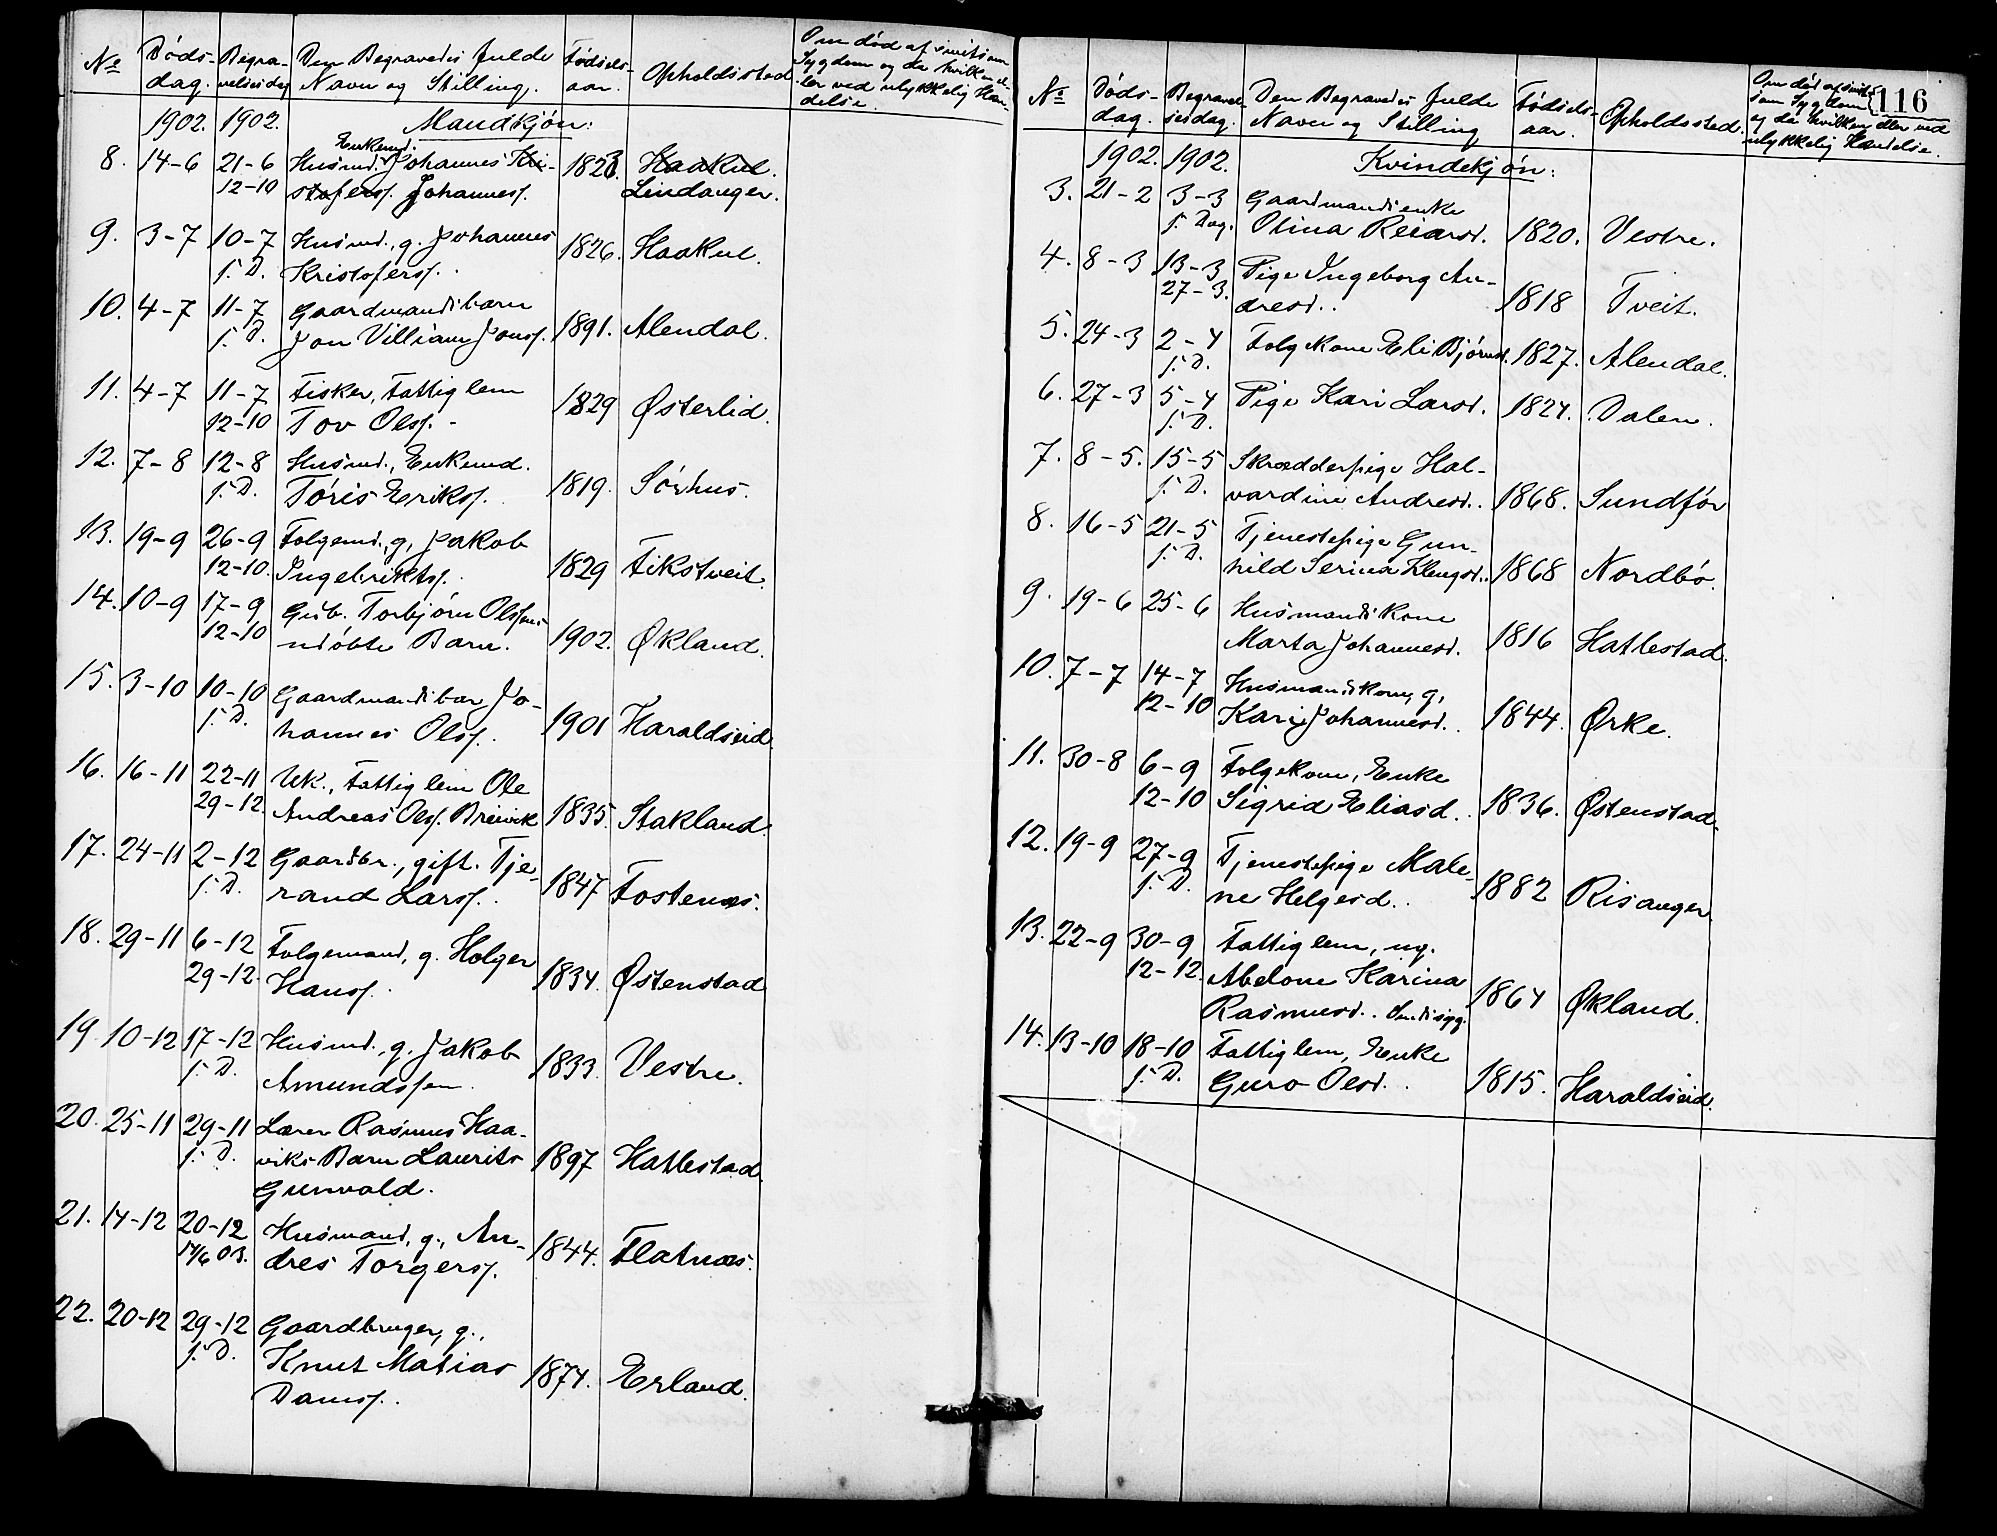 No Døds- Begra- Den Begravedes fulde Fødsels- Opholdssted Om død af smitsom
dag. velsesdag Navn og Stilling. aar. Sygdom og da hvilken el-
ler ved ulykkelig Hæn-
delse.
1902. 1902. Mandkjøn:
Enkemd.
8. 14-6 21-6 Husmd. Johannes Kri- 1823. Haakul.
12-10 stofers. Johanness. Lindanger.
9. 3-7 10-7 Husmd., g. Johannes 1826. Haakul.
s. D. Kristofers.
10. 4-7 11-7 Gaardmandsbarn
s. D. Jon Villiam Jons. 1891. Alendal.
11. 4-7 11-7 Fisker, Fattiglem 1829 Østerlid.
12-10 Tov Ols.
12. 7-8 12-8 Husmd., Enkemd.
s. D. Tóris Eriks. 1819. Sørhus.
13. 19-9 26-9 Folgemd., g. Jakob
12-10. Ingebrikts. 1829 Fikstveit.
14. 10-9 17-9 Gub. Torbjørn Olsens
12-10 udøbte Barn. 1902. Økland.
15. 3-10 10-10 Gaardmandsbar Jo-
s. D. hannes Ols. 1901 Haraldseid.
16. 16-11 22-11 Uk., Fattiglem Ole
29-12. Andreas Ols. Breivik 1835. Stakland.
17. 24-11 2-12 Gaardbr., gift. Tje-
s. D. rand Lars. 1847 Fostenæs.
18. 29-11 6-12 Folgemand, g. Holger
29-12. Hans. 1834. Østenstad
19. 10-12 17-12 Husmd., g. Jakob
s. D. Amundssen. 1833. Vestre.
20. 25-11 29-11 Lærer Rasmus Haa-
s. D. viks Barn Laurits 1897 Hatlestad.
Gunvald.
21. 14-12 20-12 Husmand, g., An-
14/6 03. dres Torgers. 1844. Flatnæs.
22. 20-12 29-12 Gaardbruger, g.,
s. D. Knut Matias 1874. Erland.
Dans.
No Døds- Begravel- Den Begravedes fulde Fødsels- Opholdssted. Om død af smit-
dag. sesdag. Navn og Stilling aar. som Sygdom
og da hvilken eller ved
ulykkelig Hændelse.
116
1902. 1902. Kvindekjøn:
3. 21-2 3-3 Gaardmandsenke
s. Dag. Olina Reiersd. 1820. Vestre.
4. 8-3 13-3 Pige Ingeborg An-
27-3. dresd. 1818 Tveit.
5. 24-3 2-4 Folgekone Eli Bjørnsd. 1827. Alendal.
s. D.
6. 27-3 5-4 Pige Kari Larsd. 1824. Dalen.
s. D.
7. 8-5. 15-5 Skrædderpige Hal-
s. D. vardine Andresd. 1868. Sundfør
8. 16-5 21-5 Tjenestepige Gun-
s. D. hild Serina Klengsd. 1868 Nordbø.
9. 19-6 25-6 Husmandskone
Marta Johannesd. 1816 Hatlestad.
10. 7-7 14-7 Husmandskone, g.,
12-10 Kari Johannesd. 1844. Ørke.
11. 30-8 6-9 Folgekone, Enke
12-10 Sigrid Eliasd. 1836. Østenstad.
12. 19-9 27-9 Tjenestepige Male-
s. D. ne Helgesd. 1882 Risanger
13. 22-9 30-9 Fattiglem, ug.
12-12. Abelone Karina 1864 Økland.
Rasmusd. Sindssyg.
14. 13-10 18-10 Fattiglem, Enke
s. D. Guro Olsd. 1815. Haraldseid.